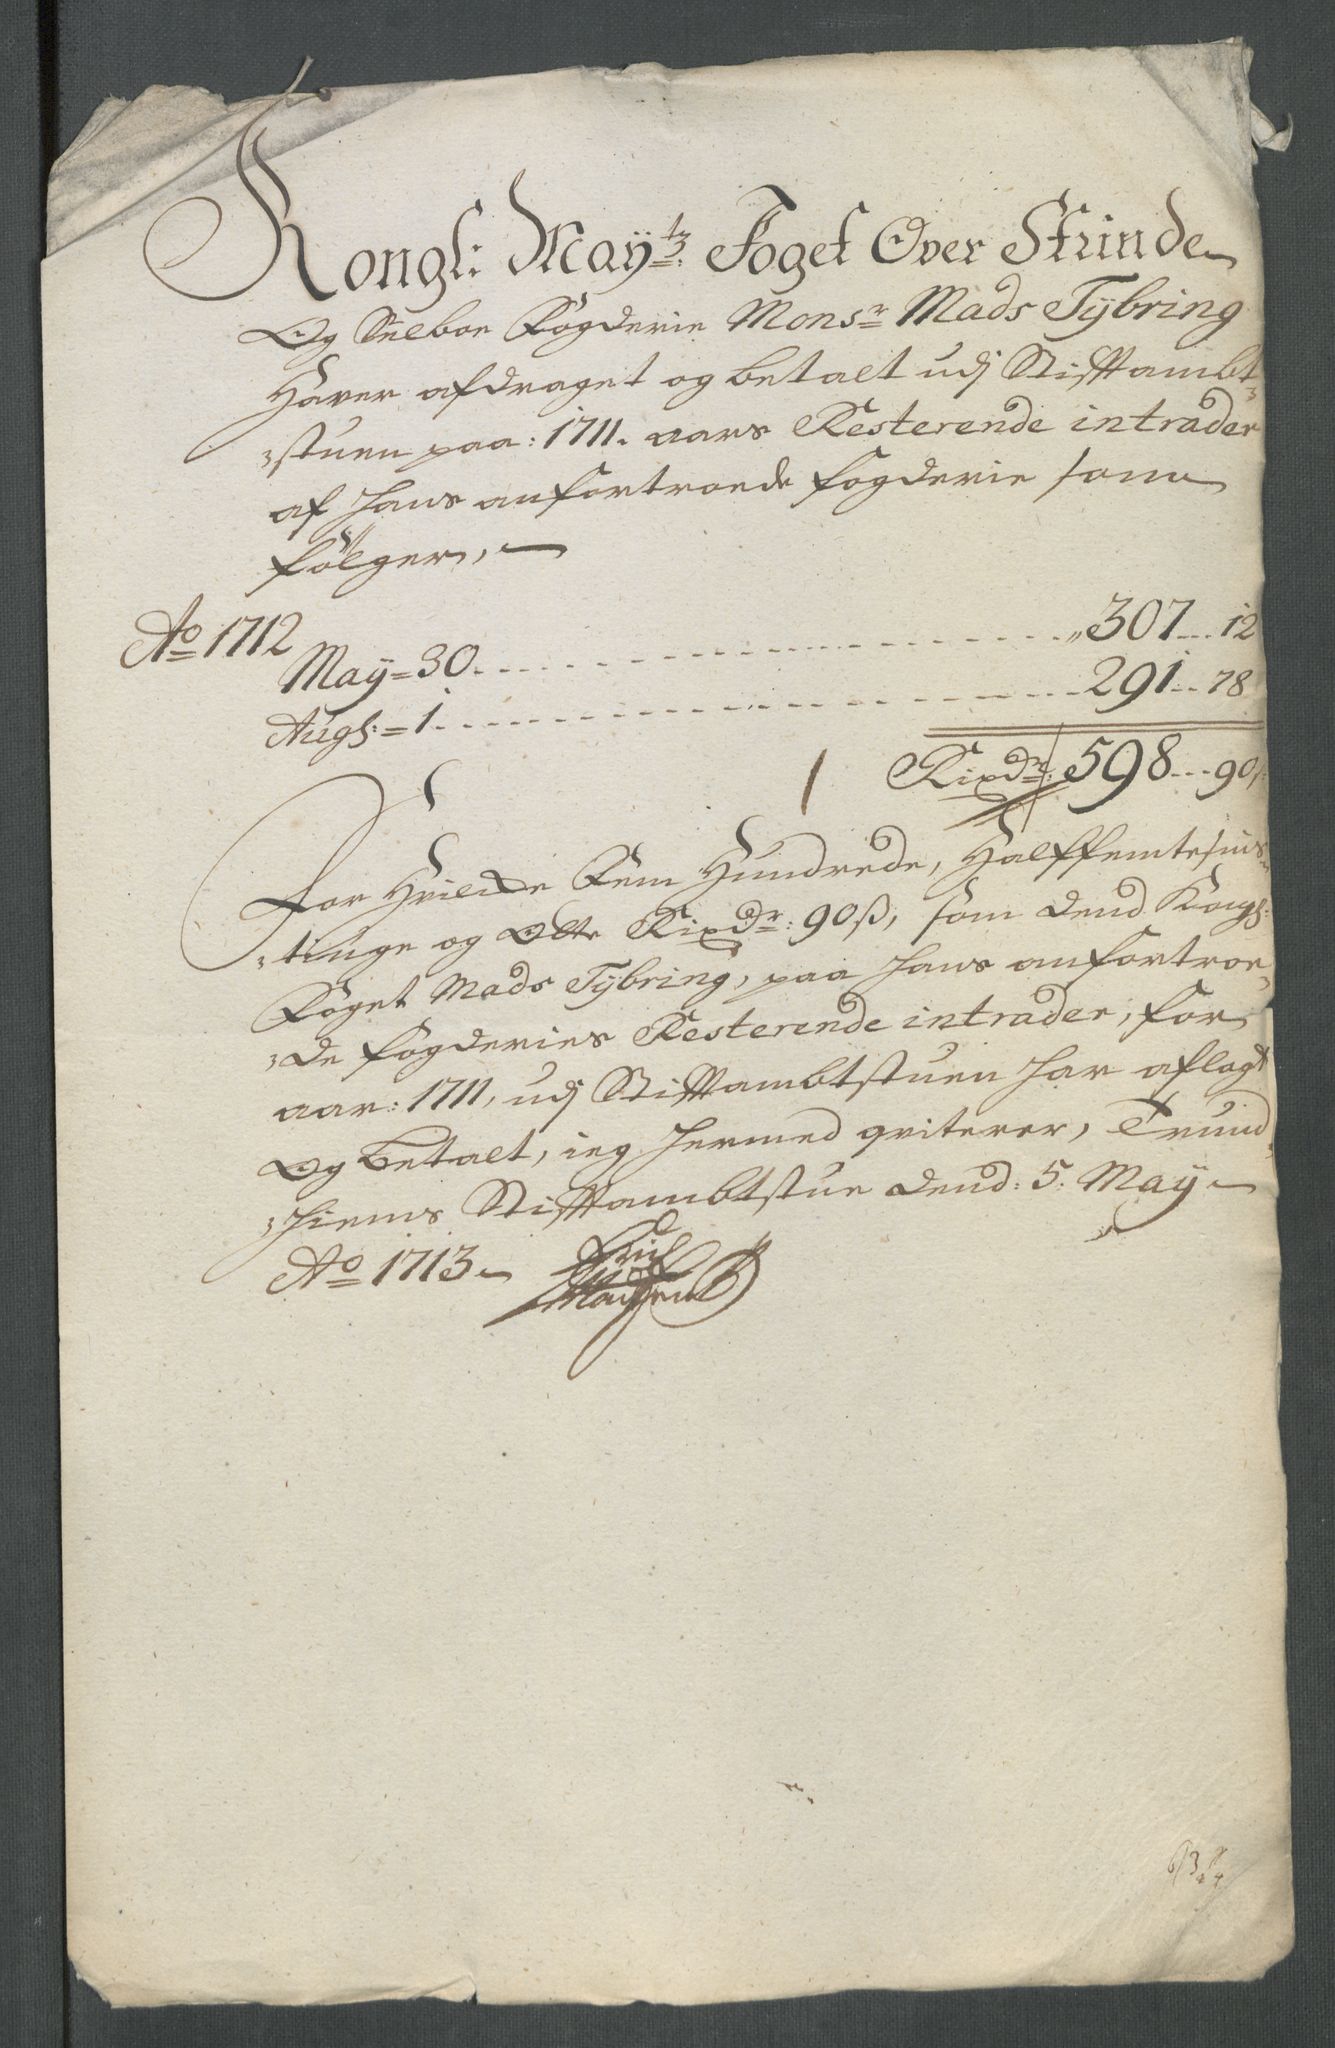 Kongl: Maÿtz Foget Over Strinde
Og Selboe Fogderie Monsr Mads Tÿbring
Haver afdraget og betalt udj Stifftambt-
stuen paa: 1711. aars Resterende intrader
af hans anfortroede fogderie som
fölger,
Ao 1712
Maÿ = 30 307 12
Augl: = 1 291 78
Rixdr: 598 90ß
For Hvilcke Fem Hundrede, Halffemtesins-
tiuge og Otte Rixdr: 90ß, som dend Kongl:
Foget Mads Tÿbring, paa hans anfortroe-
de fogderies Resterende intrader, for
aar: 1711, udj Stifftambtstuen har aflagt
Og betalt, ieg hermed qviterer, Trund
hiems Stifftambtstue dend: 5: Maÿ
Ao 1713